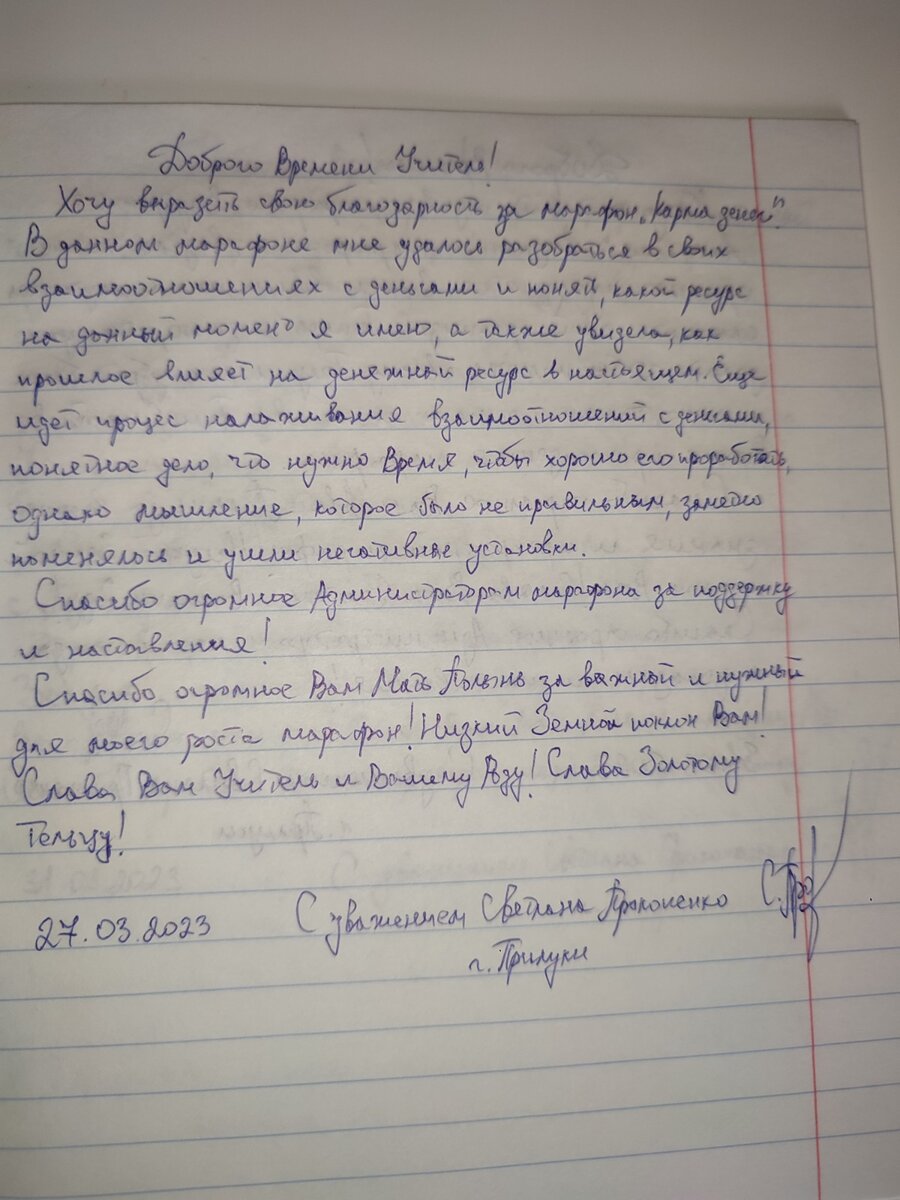 Доброго Времени Учитель!
Хочу выразить свою благодарность за марафон „Карма денег".
В данном марафоне мне удалось разобраться в своих
взаимоотношениях с деньгами и понять, какой ресурс
на данный момент я имею, а также увидела, как
прошлое влияет на денежный ресурс в настоящем. Ещё
идёт процес налаживания взаимоотношений с деньгами,
понятное дело, что нужно Время, чтобы хорошо его проработать,
однако мышление, которое было не правильным, заметно
поменялось и ушли негативные установки.
Спасибо огромное Администраторам марафона за поддержку
и наставления!
Спасибо огромное Вам Мать Полынь за важный и нужный
для моего роста марафон! Низкий Земной поклон Вам!
Слава Вам Учитель и Вашему Роду! Слава Золотому
Тельцу!
27.03.2023 С уважением Светлана
г. Прилуки